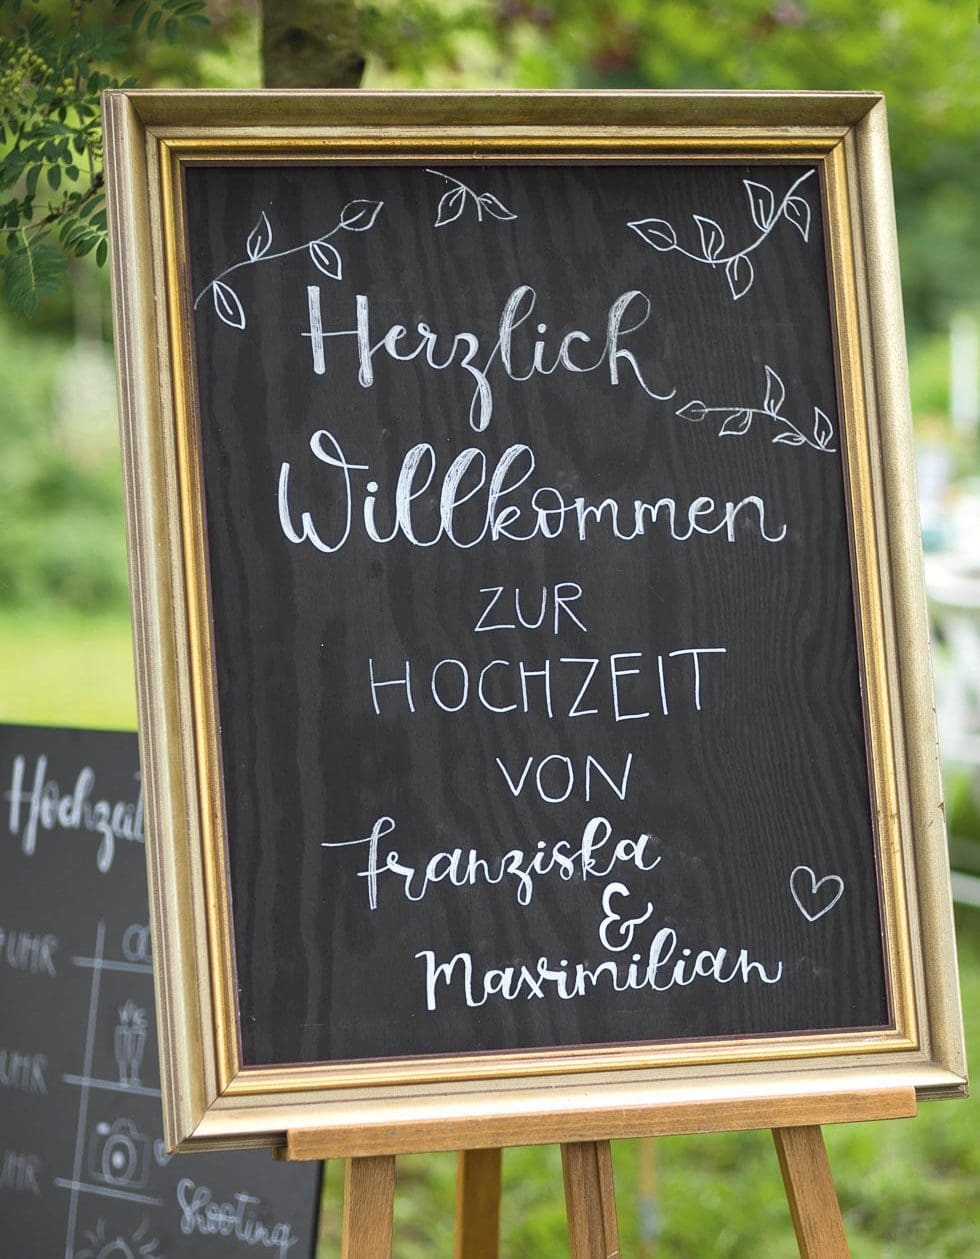 Herzlich
Willkommen
ZUR
HOCHZEIT
VON
Franziska
&
Maximilian
UHR
UHR
Shooting